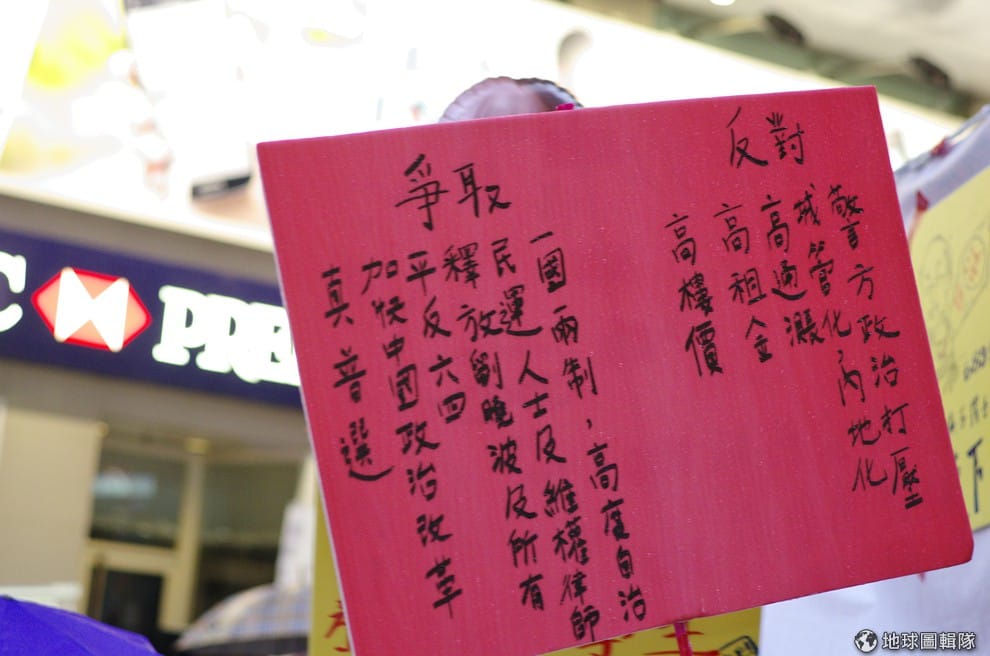 爭取
真普選
加快中國政治改革
平反六四
釋放劉晚波及所有
民運人士及維權律師
一國兩制，高度自治
反對
高樓價
高租金
高通漲
城管化，內地化
警方政治打壓
C
PRE
下
地球圖輯隊